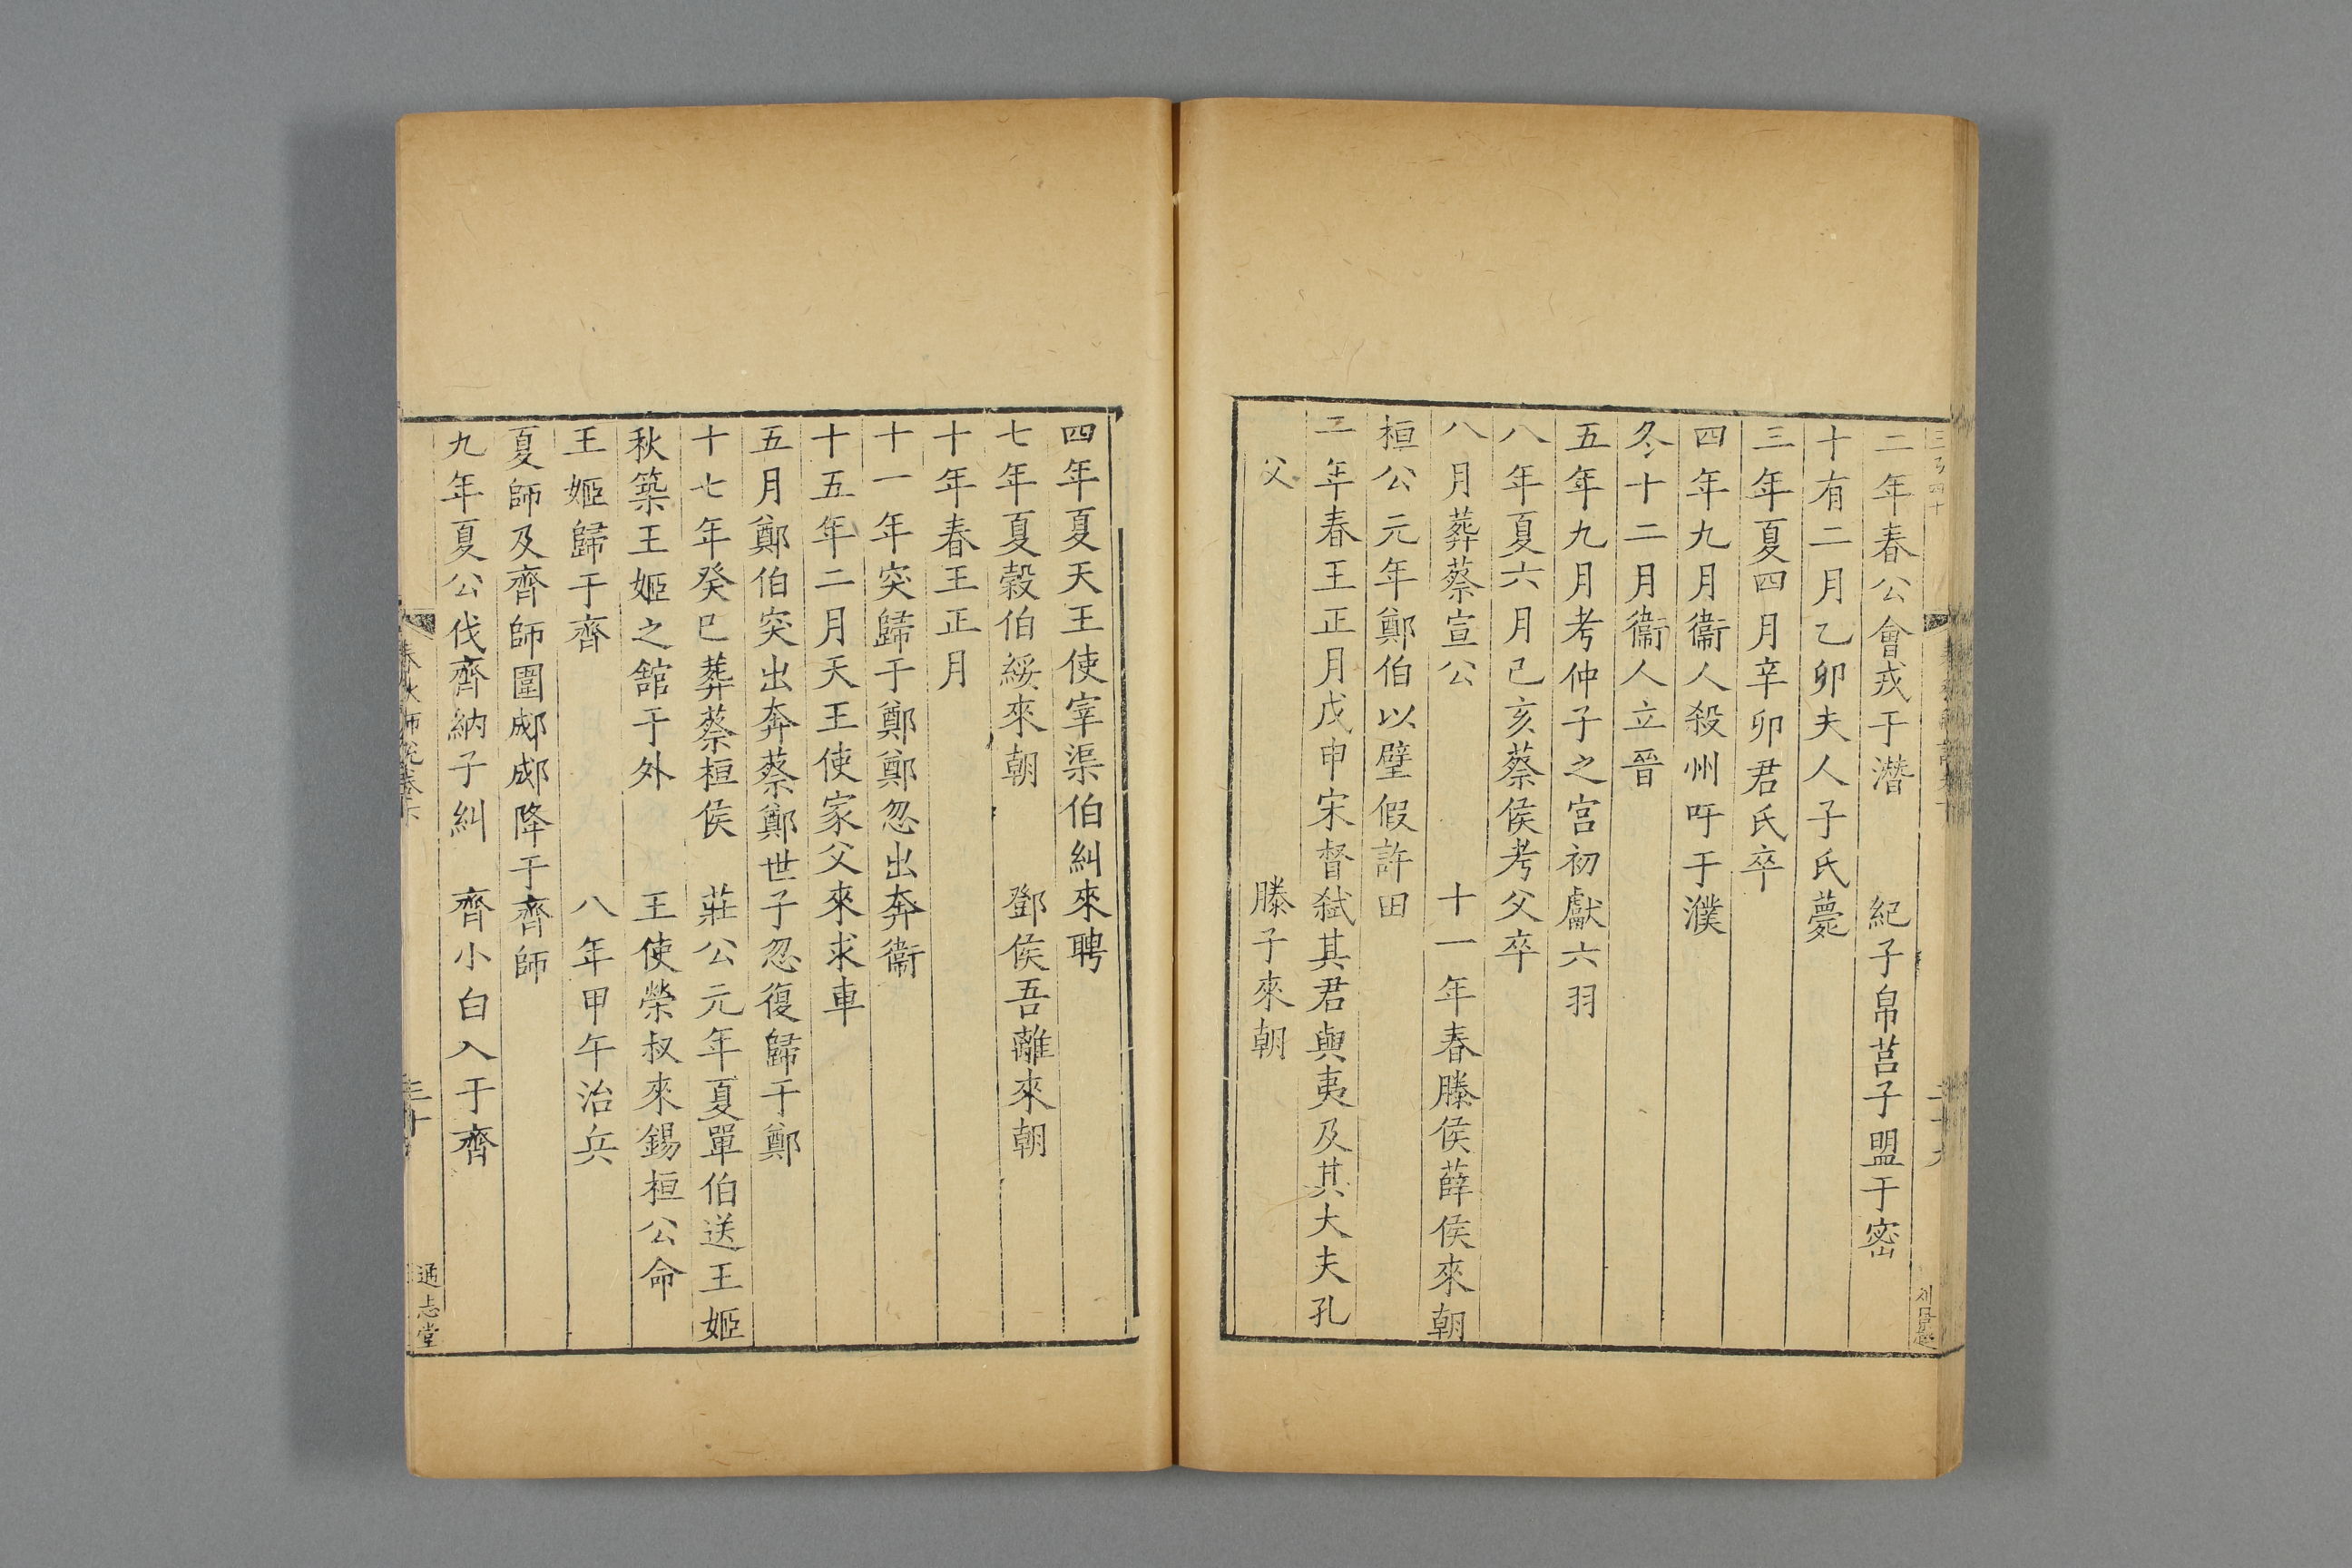 二年春公會戎于潛　紀子帛莒子盟于密
十有二月乙卯夫人子氏薨
三年夏四月辛卯君氏卒
四年九月衞人殺州吁于濮
冬十二月衞人立晉
五年九月考仲子之宮初獻六羽
八年夏六月己亥蔡侯考父卒
八月葬蔡宣公　十一年春滕侯薛侯來朝
桓公元年鄭伯以璧假許田
二年春王正月戊申宋督弑其君與夷及其大夫孔
父　滕子來朝
四年夏天王使宰渠伯糾來聘
七年夏穀伯綏來朝　鄧侯吾離來朝
十年春王正月
十一年突歸于鄭鄭忽出奔衞
十五年二月天王使家父來求車
五月鄭伯突出奔蔡鄭世子忽復歸于鄭
十七年癸巳葬蔡桓侯　莊公元年夏單伯送王姬
秋築王姬之舘于外　王使榮叔來錫桓公命
王姬歸于齊　八年甲午治兵
夏師及齊師圍郕郕降于齊師
九年夏公伐齊納子糾　齊小白入于齊
三十
通志堂